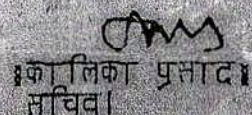 :कालिका प्रसाद:
सचिव।